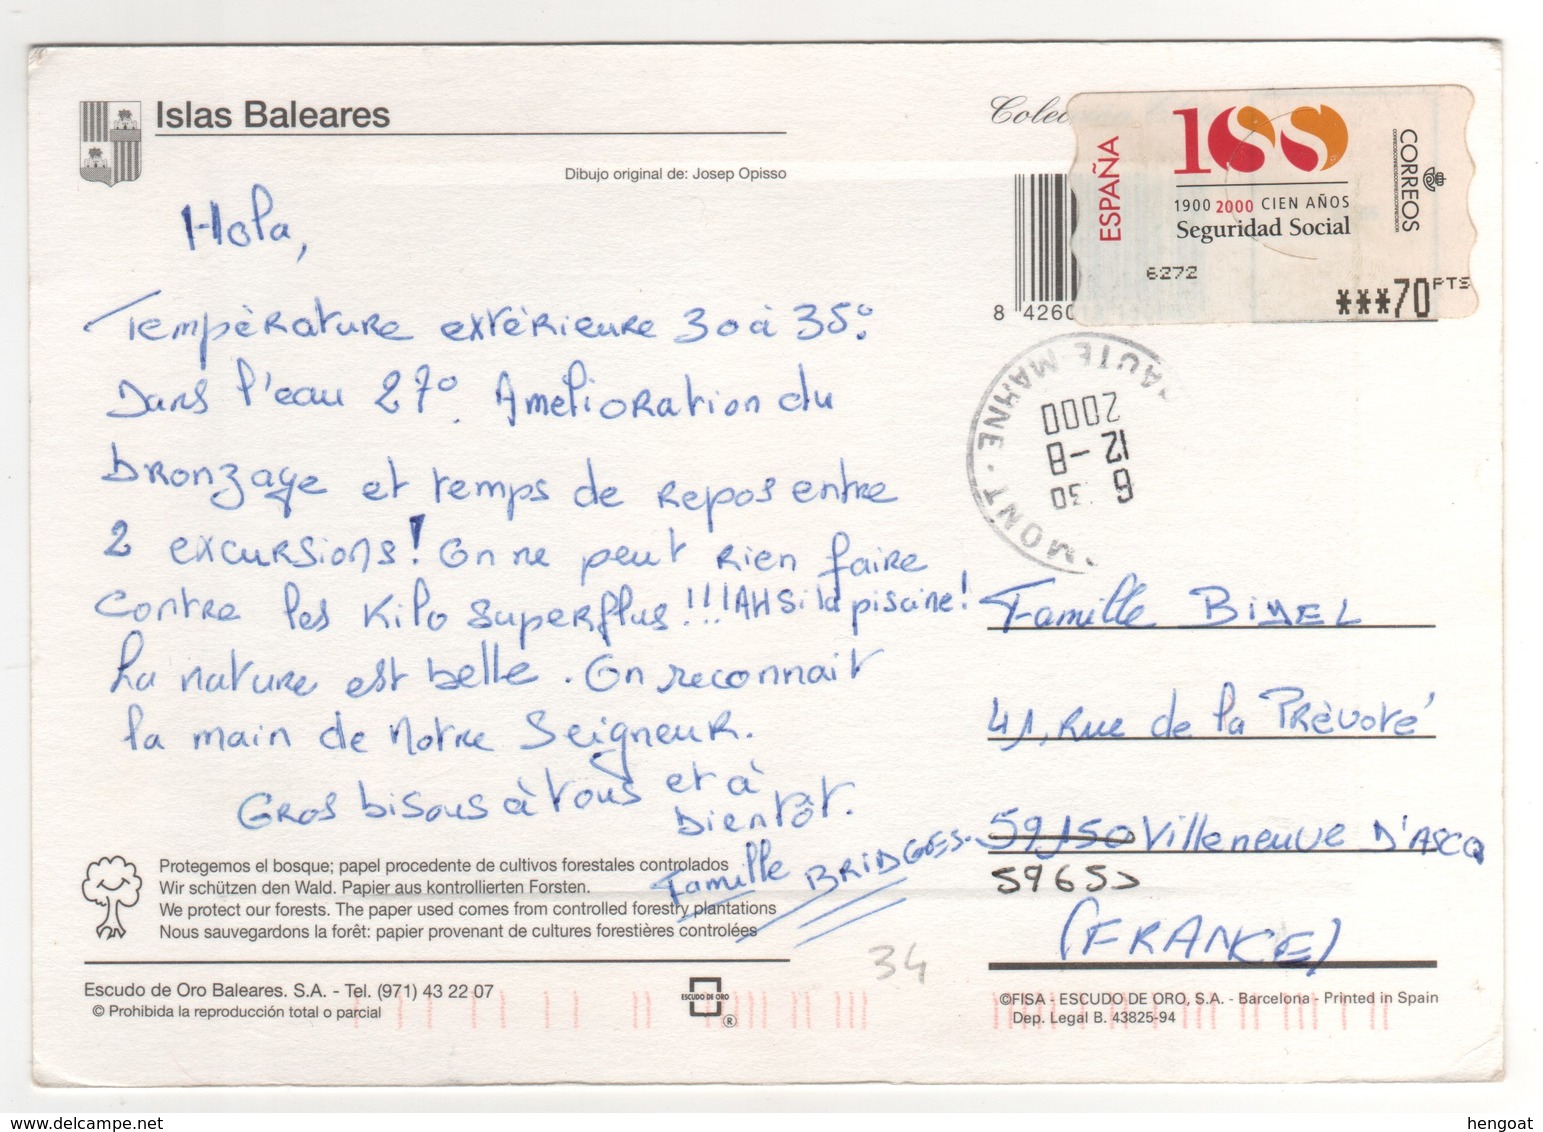 Islas Baleares
Dibujo original de: Josep Opisso
ESPAÑA
100
1900 2000 CIEN AÑOS
Seguridad Social
CORREOS
6272
***70 PTS
8 4260
HAUTE-MARNE
MONT
2000
12 -8
6 30
Hola,
Température extérieure 30 à 35°.
Dans l'eau 27°. Amélioration du
bronzage et temps de repos entre
2 excursions! On ne peut rien faire
contre les Kilo superflus!!! AH si la piscine!
La nature est belle. On reconnait
la main de Notre Seigneur.
Gros bisous à tous et à
bientôt.
Famille BRIDGES.
Famille BIMEL
41, Rue de la Prévoté
59150 Villeneuve D'ASCQ
59650
(FRANCE)
Protegemos el bosque; papel procedente de cultivos forestales controlados
Wir schützen den Wald. Papier aus kontrollierten Forsten.
We protect our forests. The paper used comes from controlled forestry plantations
Nous sauvegardons la forêt: papier provenant de cultures forestières controlées
34
Escudo de Oro Baleares. S.A. - Tel. (971) 43 22 07
© Prohibida la reproducción total o parcial
ESCUDO DE ORO
®
©FISA - ESCUDO DE ORO, S.A. - Barcelona - Printed in Spain
Dep. Legal B. 43825-94
www.delcampe.net
hengoat